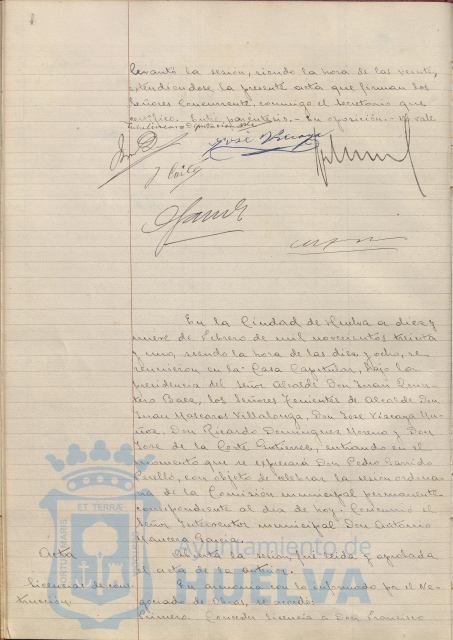 levantó la sesión, siendo la hora de las veinte,
extendiéndose la presente acta que firman los
Señores Concurrente, conmigo el Secretario que
certifico. Entre parentesis.- En oposición.- No vale
José Vizcaya
En la Ciudad de Huelva a diez y
nueve de Febrero de mil novecientos treinta
y uno, siendo la hora de las diez y ocho, se
reunieron en la Casa Capitular, bajo la
presidencia del Señor Alcalde Don Juan Quin-
tero Baez, los Señores Tenientes de Alcalde Don
Juan Mascaros Villalonga, Don José Vizcaya Mu-
ñoz, Don Ricardo Dominguez Moreno y Don
José de la Corte Gutierrez, entrando en el
momento que se expresará Don Pedro Garrido
Perelló, con objeto de celebrar la sesion ordina-
ria de la Comisión municipal permanente
correspondiente al dia de hoy. Concurrió el
Señor Interventor municipal Don Antonio
Mancera Garcia.
Acta
Abierta la sesion, fué leida y aprobada
el acta de la anterior.
Licencias de cons-
trucción.
En armonia con lo informado por el Ne-
gociado de Obras, se acordó:
Primero. Conceder licencia a Don Francisco
ET TERRÆ
PORTUS MARIS
Ayuntamiento de
HUELVA